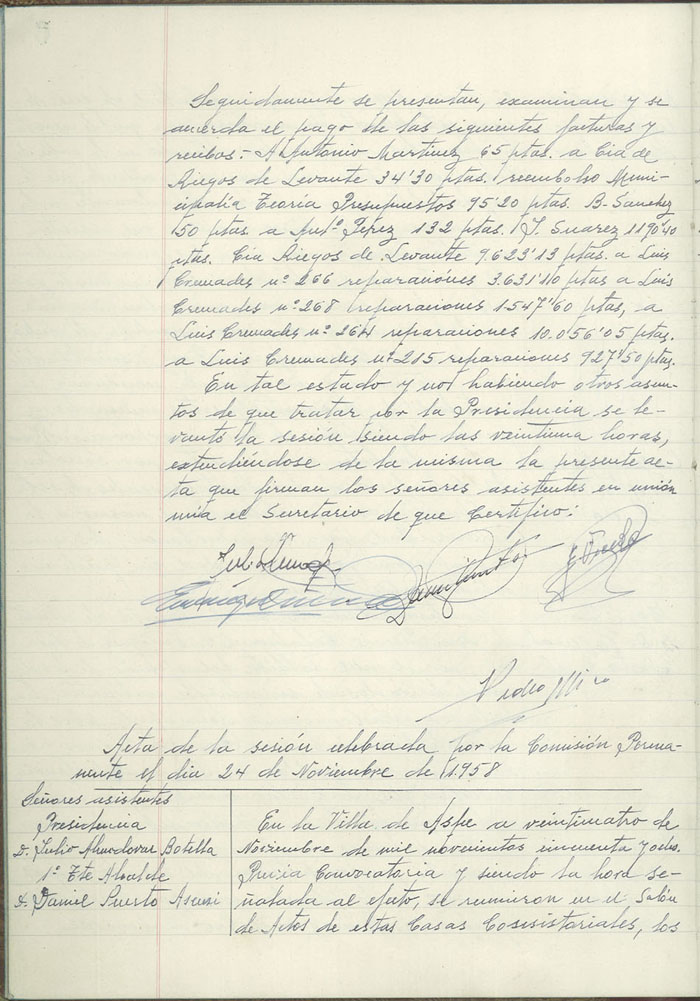 Seguidamente se presentan, examinan y se
acuerda el pago de las siguientes facturas y
recibos:- A Antonio Martinez 65 ptas. a Cia de
Riegos de Levante 34'30 ptas. reembolso Muni-
cipalia Teoria Presupuestos 95'20 ptas. B. Sanchez
50 ptas. a Antº Pérez 132 ptas. J. Suarez 1190'40
ptas. Cia Riegos de Levante 9.623'13 ptas. a Luis
Cremades nº 266 reparaciónes 3.631'10 ptas a Luis
Cremades nº 268 reparaciones 1547'60 ptas, a
Luis Cremades nº 264 reparaciones 10.056'05 ptas.
a Luis Cremades nº 215 reparaciones 927'50 ptas.
En tal estado y no habiendo otros asun-
tos de que tratar por la Presidencia se le-
vantó la sesión siendo las veintiuna horas,
extendiéndose de la misma la presente ac-
ta que firman los señores asistentes en unión
mia el Secretario de que Certifico:
Pedro Miro
Acta de la sesión celebrada por la Comisión Perma-
nente el dia 24 de Noviembre de 1.958
Señores asistentes
Presidencia
D. Julio Almodovar Botella
1º Tte Alcalde
D. Daniel Puerto Asensi
En la Villa de Aspe a veinticuatro de
Noviembre de mil novecientos cincuenta y ocho.
Previa Convocatoria y siendo la hora se-
ñalada al efecto, se reunieron en el Salón
de Actos de estas Casas Cosesistoriales, los